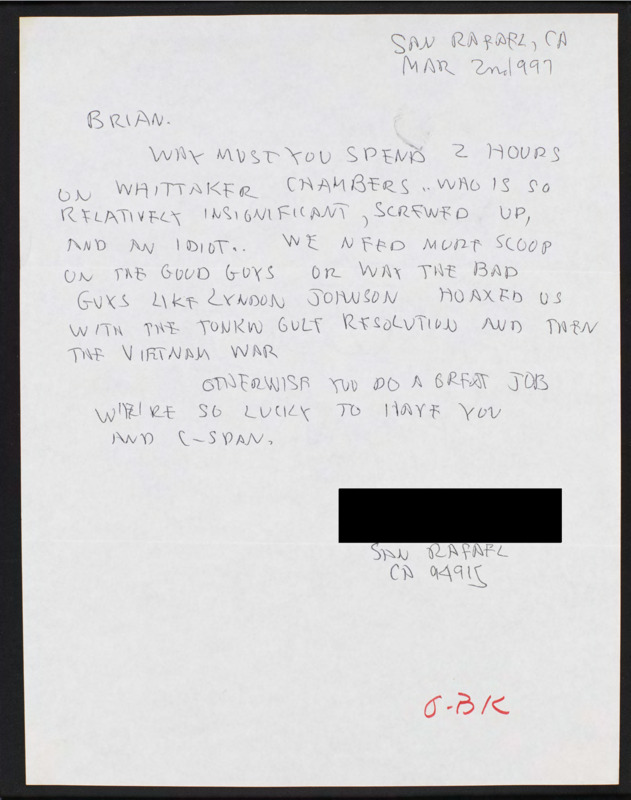 SAN RAFAEL, CA
MAR 2nd 1997
BRIAN.
WHY MUST YOU SPEND 2 HOURS
ON WHITTAKER CHAMBERS.. WHO IS SO
RELATIVELY INSIGNIFICANT, SCREWED UP,
AND AN IDIOT.. WE NEED MORE SCOOP
ON THE GOOD GUYS OR WHY THE BAD
GUYS LIKE LYNDON JOHNSON HOAXED US
WITH THE TONKIN GULF RESOLUTION AND THEN
THE VIETNAM WAR
OTHERWISE YOU DO A GREAT JOB
WE'RE SO LUCKY TO HAVE YOU
AND C-SPAN.
SAN RAFAEL
CA 94915
J-BK